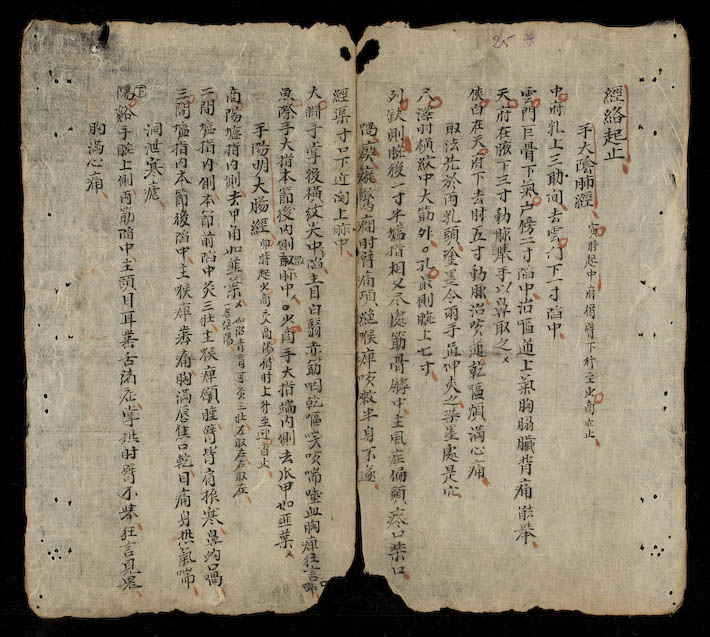 25
經絡起止
手太陰肺經 寅時起中府循臂下行至少商穴止
中府乳上三肋間去雲門下一寸陷中
雲門巨骨下氣户傍二寸陷中治嘔逆上氣胸脇臟背痛難舉
天府在腋下三寸動脉舉手以鼻取之
俠白在天府下去肘五寸動脉治咳逆乾嘔煩滿心痛
取法先於兩乳頭塗墨令兩手直伸夾之染墨處是穴
尺澤肘橫紋中大筋外。孔最側腕上七寸
列缺則腕後一寸半塩指相叉尽處筋骨罅中主風症偏頭疼口禁口
喎瘓癡驚痛肘臂痛項絕喉庳咳嗽半身不遂
經渠寸口下近関上脉中
大淵手掌後橫紋尖中陷主目白翳赤筋咽乾嘔咳喘唾血胸庳狂言
魚際手大指本節後內側散脉中。少商手大指端內側去爪甲如韮葉
手陽明大腸經 卯時起少商交入商陽循肘上行至迎香止
商陽塩指內側去甲角如韮葉 一名絕陽
二間塩指內側本節前陷中灸三壯主猴庳頷腫臂背肩疼寒鼻衄口喎
三間塩指內本節後陷中主喉庳牙痛胸滿唇焦口乾目痛身热氣喘
洞泄寒瘧
陽谿手腕上側兩筋陷中主頭目耳牙舌諸症掌热肘臂不舉狂言見鬼
胸滿心痛